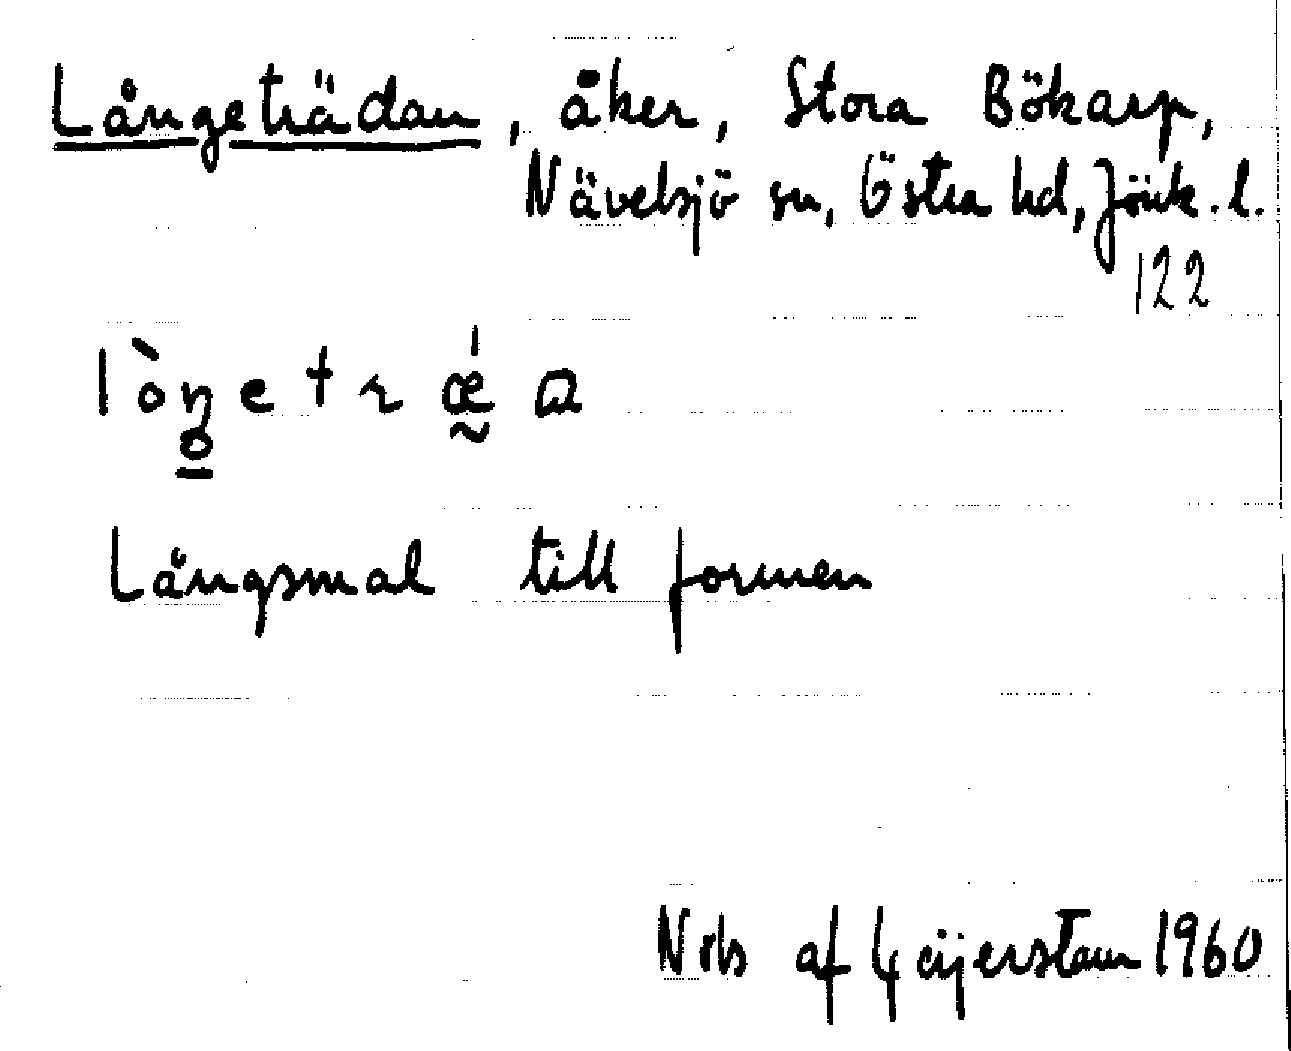 Långeträdan, åker, Stora Bökarp,
Nävelsjö sn, Östra hd, Jönk. l.
122
lòŋetrǽa
Långsmal till formen
Nils af Geijerstam 1960